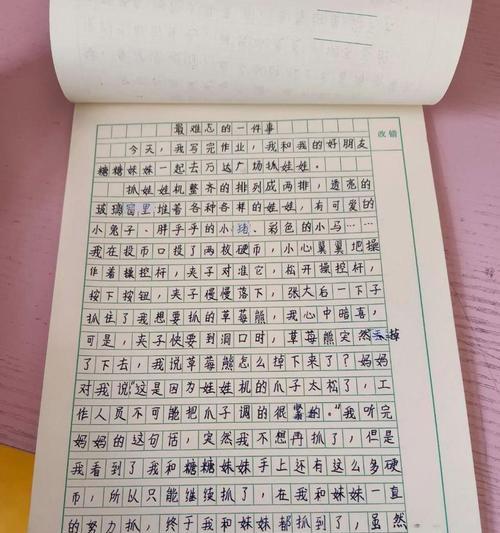 改错
最难忘的一件事
今天，我写完作业，我和我的好朋友
糖糖妹妹一起去万达广场抓娃娃。
抓娃娃机整齐的排列成两排，透亮的
玻璃窗里堆着各种各样的娃娃，有可爱的
小兔子、胖乎乎的小猪、彩色的小马……
我在投币口投了两枚硬币，小心翼翼地操
作着操控杆，夹子对准它，松开操控杆，
按下按钮，夹子慢慢落下，张大后一下子
抓住了我想要抓的草莓熊，我心中暗喜，
可是，夹子快要到洞口时，草莓熊突然掉
了下去，我说草莓熊怎么掉下来了？妈妈
对我说“这是因为娃娃机的爪子太松了，工
作人员不可能把爪子调的很紧的。”我听完
妈妈的这句话，突然我不想再抓了，但是
我看到了我和糖糖妹妹手上还有这么多硬
币，所以只能继续抓了，在我和妹妹一直
的努力抓，终于我和妹妹都抓到了，虽然